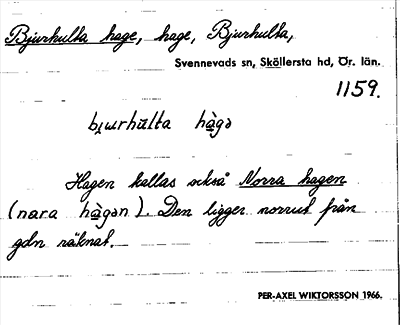 Bjurhulta hage, hage, Bjurhulta,
Svennevads sn, Sköllersta hd, Ör. län.
1159.
bjɯrhùlta hàgə
Hagen kallas också Norra hagen
(nara hàgən). Den ligger norrut från
gdn räknat.
PER-AXEL WIKTORSSON 1966.